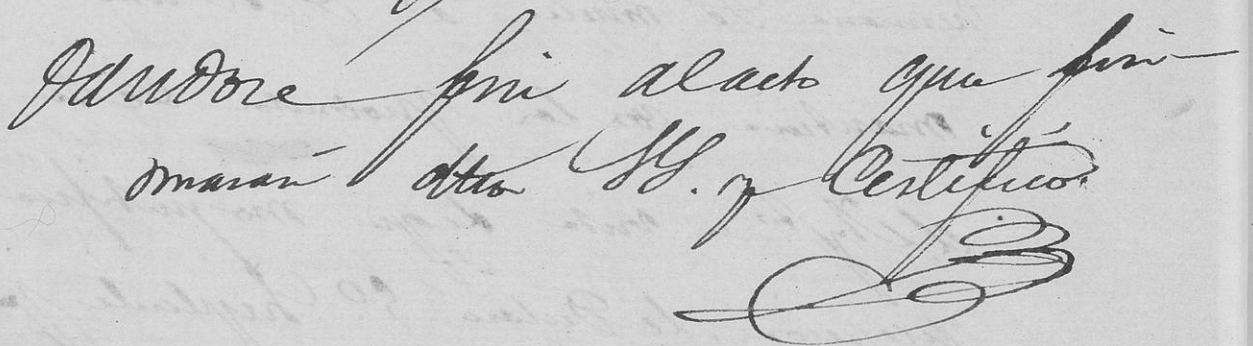 dandose fin al acto que fir-
maran dhos SS. y Certifico.